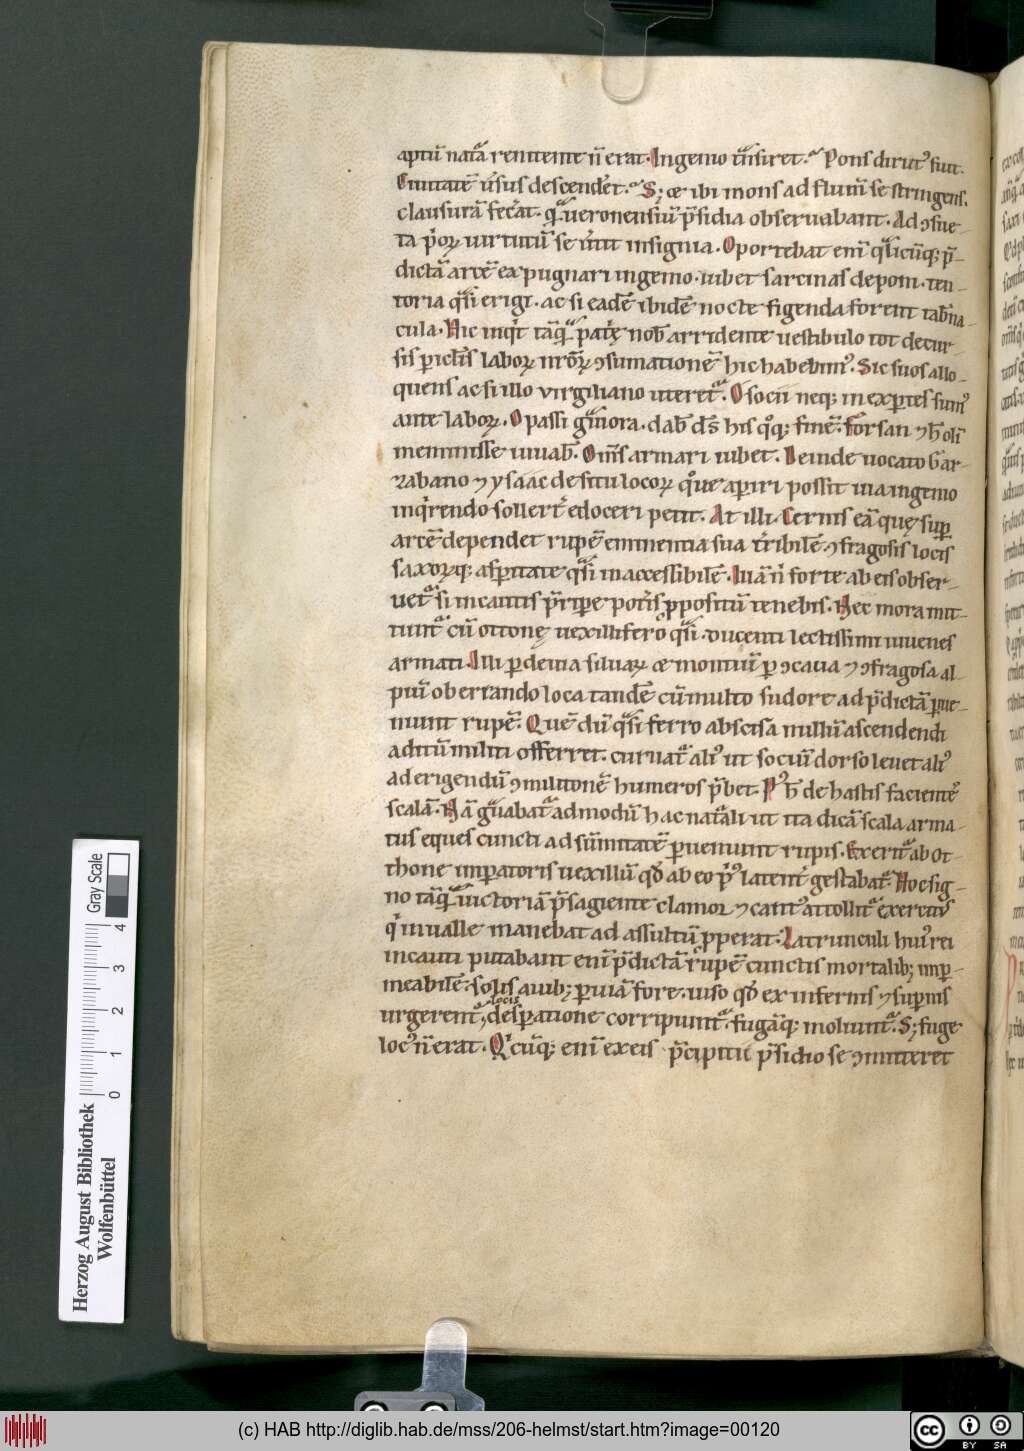 aptū natā renitent n̄ erat. Ingenio tͣnsiret. Pons dirutꝰ fuit.
Ciuitatē ūsus descendet. Sꝫ & ibi mons ad flum̄ se stringens.
clausurā fecerat. q̄ ueronensiū p̄sidia obseruabant. Ad ɔsue-
ta p̄orꝝ uirtutū se ūtit insignia. Oportebat enī q̄licūqꝫ p̄-
dictā artē expugnari ingenio. iubet sarcinas deponi. ten-
toria q̄si erigi. ac si eadē ibidē nocte figenda forent tab̄na-
cula. Hic inqͥt tāqͣ pat̄e nob̄ arridente uestibulo tot decur-
sis piclis laborꝝ nr̄orꝝ ɔsumationē hic habebimꝰ. Sic suos allo-
quens ac si illo virgiliano uteretͬ. O socii neqꝫ inexꝑtes sumꝰ
ante laborꝝ. O passi gͣuiora. dab̄ ds̄ his qͦqꝫ finē. Forsan ⁊ h̄ oli
meminisse iuuab̄. Om̄s armari iubet. Deinde uocato Gar-
zabano ⁊ ysaac de situ locorꝝ qͦue aꝑiri possit uia ingenio
inqͥrendo sollertͥ edoceri petit. At illi. Cernis eā quę suꝑ
artē dependet rupē eminentia sua tͥribilē. ⁊ fragosis locis
saxorꝝqꝫ asꝑitate q̄si inaccessibilē. Illā n̄ forte ab eis obser-
uetͬ si incautis p̄riꝑe potͥis ꝓpositū tenebis. Nec mora mit-
tunt̄ cū ottone uexillifero q̄si ducenti lectissimi iuuenes
armati. Illi ꝑ deuia siluarꝝ & montiū ꝑ ɔcaua ⁊ ɔfragosa al-
piū oberrando loca tandē cū multo sudore ad p̄dictā ꝑue-
niunt rupē. Quę dū q̄si ferro abscisa nullū ascendendi
aditū militi offerret. curuatͬ aliꝰ ut sociū dorso leuet aliꝰ
ad erigendū ɔmilitonē humeros p̄bet. Pꝰ h̄ de hastis facientes
scalā. Nā gͣuabatͬ admodū hac natͣali ut ita dicā scala arma-
tus eques cuncti ad sūmitatē ꝑuenerunt rupis. Exeritͬ ab ot-
thone imꝑatoris uexillū qd̄ ab eo pͥꝰ latentͥ gestabatͬ. Hoc sig-
no tāqͣ uictoriā p̄sagiente clamor ⁊ cantꝰ attollitͬ. Exercitꝰ
qͥ in ualle manebat ad assultū ꝓperat. Latrunculi huiꝰ rei
incauti putabant enī p̄dictā rupē cunctis mortalibꝫ imꝑ-
meabilē. solis auibꝫ ꝑuiā fore. uiso qd̄ ex infernis ⁊ suꝑnis
locis
urgerentͬ. desꝑatione corripiuntͬ. fugāqꝫ moliuntͬ. Sꝫ fuge
locꝰ n̄ erat. Qͥcūqꝫ enī ex eis p̄cipitii p̄sidio se ɔmitteret
Gray Scale
0 1 2 3 4
Herzog August Bibliothek
Wolfenbüttel
(c) HAB http://diglib.hab.de/mss/206-helmst/start.htm?image=00120
cc BY SA